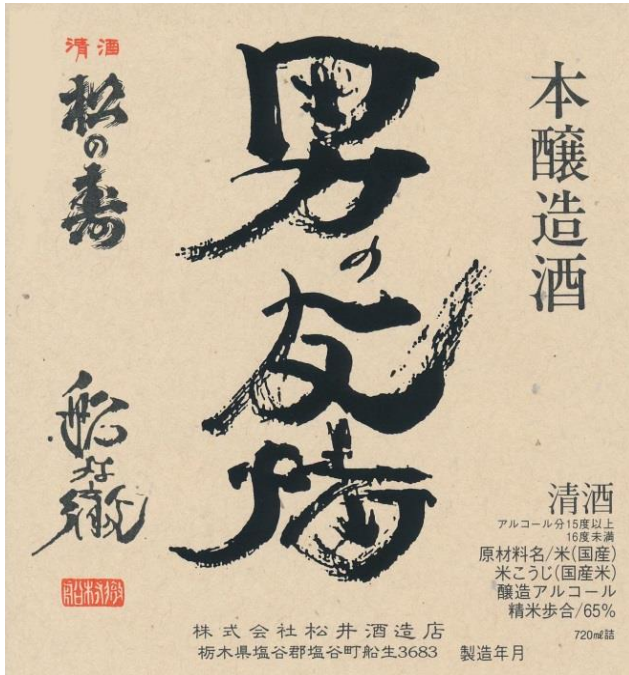 本醸造酒
男の友情
清酒
松の寿
船村徹
船村徹
清酒
アルコール分15度以上
16度未満
原材料名/米(国産)
米こうじ(国産米)
醸造アルコール
精米歩合/65%
720㎖詰
株式会社松井酒造店
栃木県塩谷郡塩谷町船生3683 製造年月